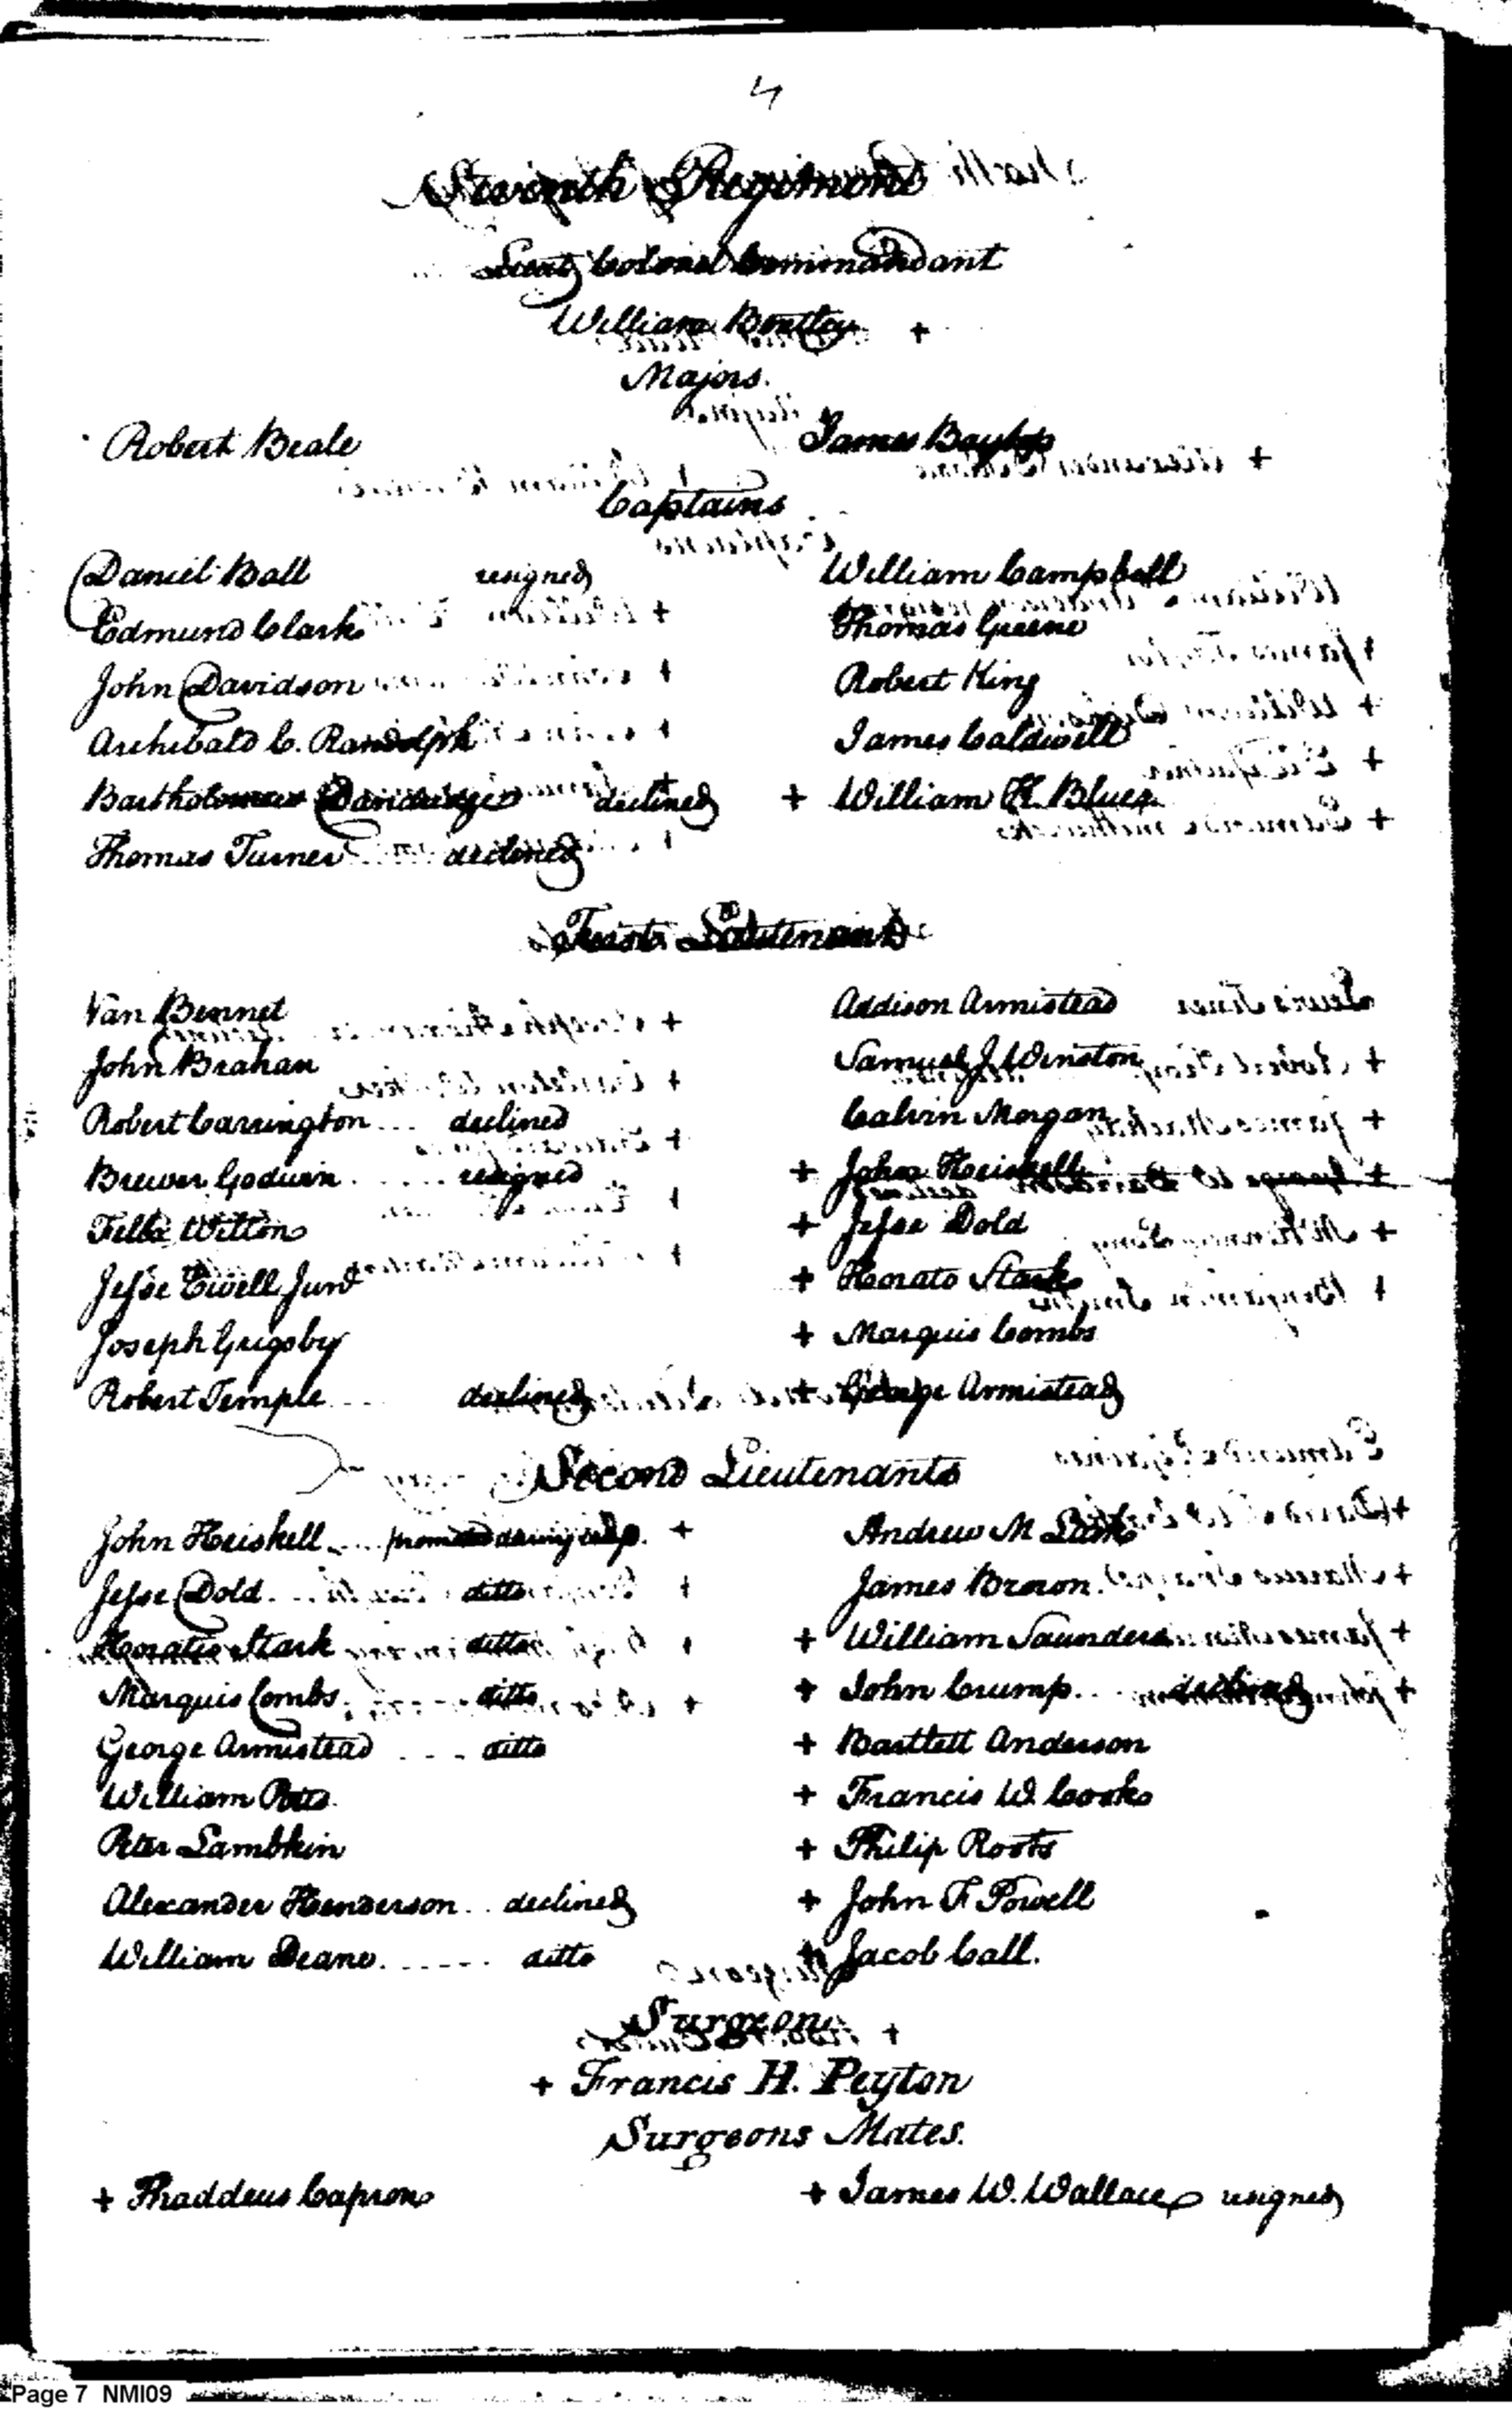 4
Seventh Regiment
Lieut Colonel Commandant
William Bentley +
Majors.
Robert Beale James Baytop
Captains
Daniel Ball resigned William Campbell
Edmund Clark Thomas Greene
John Davidson Robert King
Archibald C. Randolph James Caldwell
Bartholomew Dandridge declined + William K. Blue
Thomas Turner declined
First Lieutenants
Van Bennet Addison Armistead
John Brahan Samuel J Winston
Robert Carrington ... declined Calvin Morgan
Brewer Godwin ..... resigned + John Heiskell
Wilton + Jesse Dold
Jesse Ewell Junr + Horato Stark
Joseph Grigsby + Marquis Combs
Robert Temple .... declined + George Armistead
Second Lieutenants
John Heiskell .... promoted + Andrew M
Jesse Dold ... ditto James Brown.
Horatio Stark ditto + William Saunders
Marquis Combs. ditto + John Crump... declined
George Armistead .... ditto + Bartlett Anderson
William Potts. + Francis W. Cooke
Peter Lambkin + Philip Roots
Alexander Henderson .. declined + John F Powell
William Deane ...... ditto + Jacob Call.
Surgeon
+ Francis H. Peyton
Surgeons Mates.
+ Thaddeus Capron + James W. Wallace resigned
Page 7 NMI09